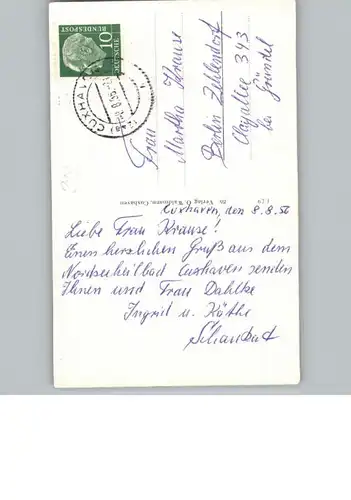 DEUTSCHE
BUNDESPOST
10
CUXHAVEN
Frau
Martha Krause
Berlin Zehlendorf
Clayallee 343
bei Gründel
Verlag O. Waldmann, Cuxhaven
Cuxhaven, den 8.8.56
Liebe Frau Krause!
Einen herzlichen Gruß aus dem
Nordseeheilbad Cuxhaven senden
Ihnen und Frau Dahlke
Ingrid u. Käthe